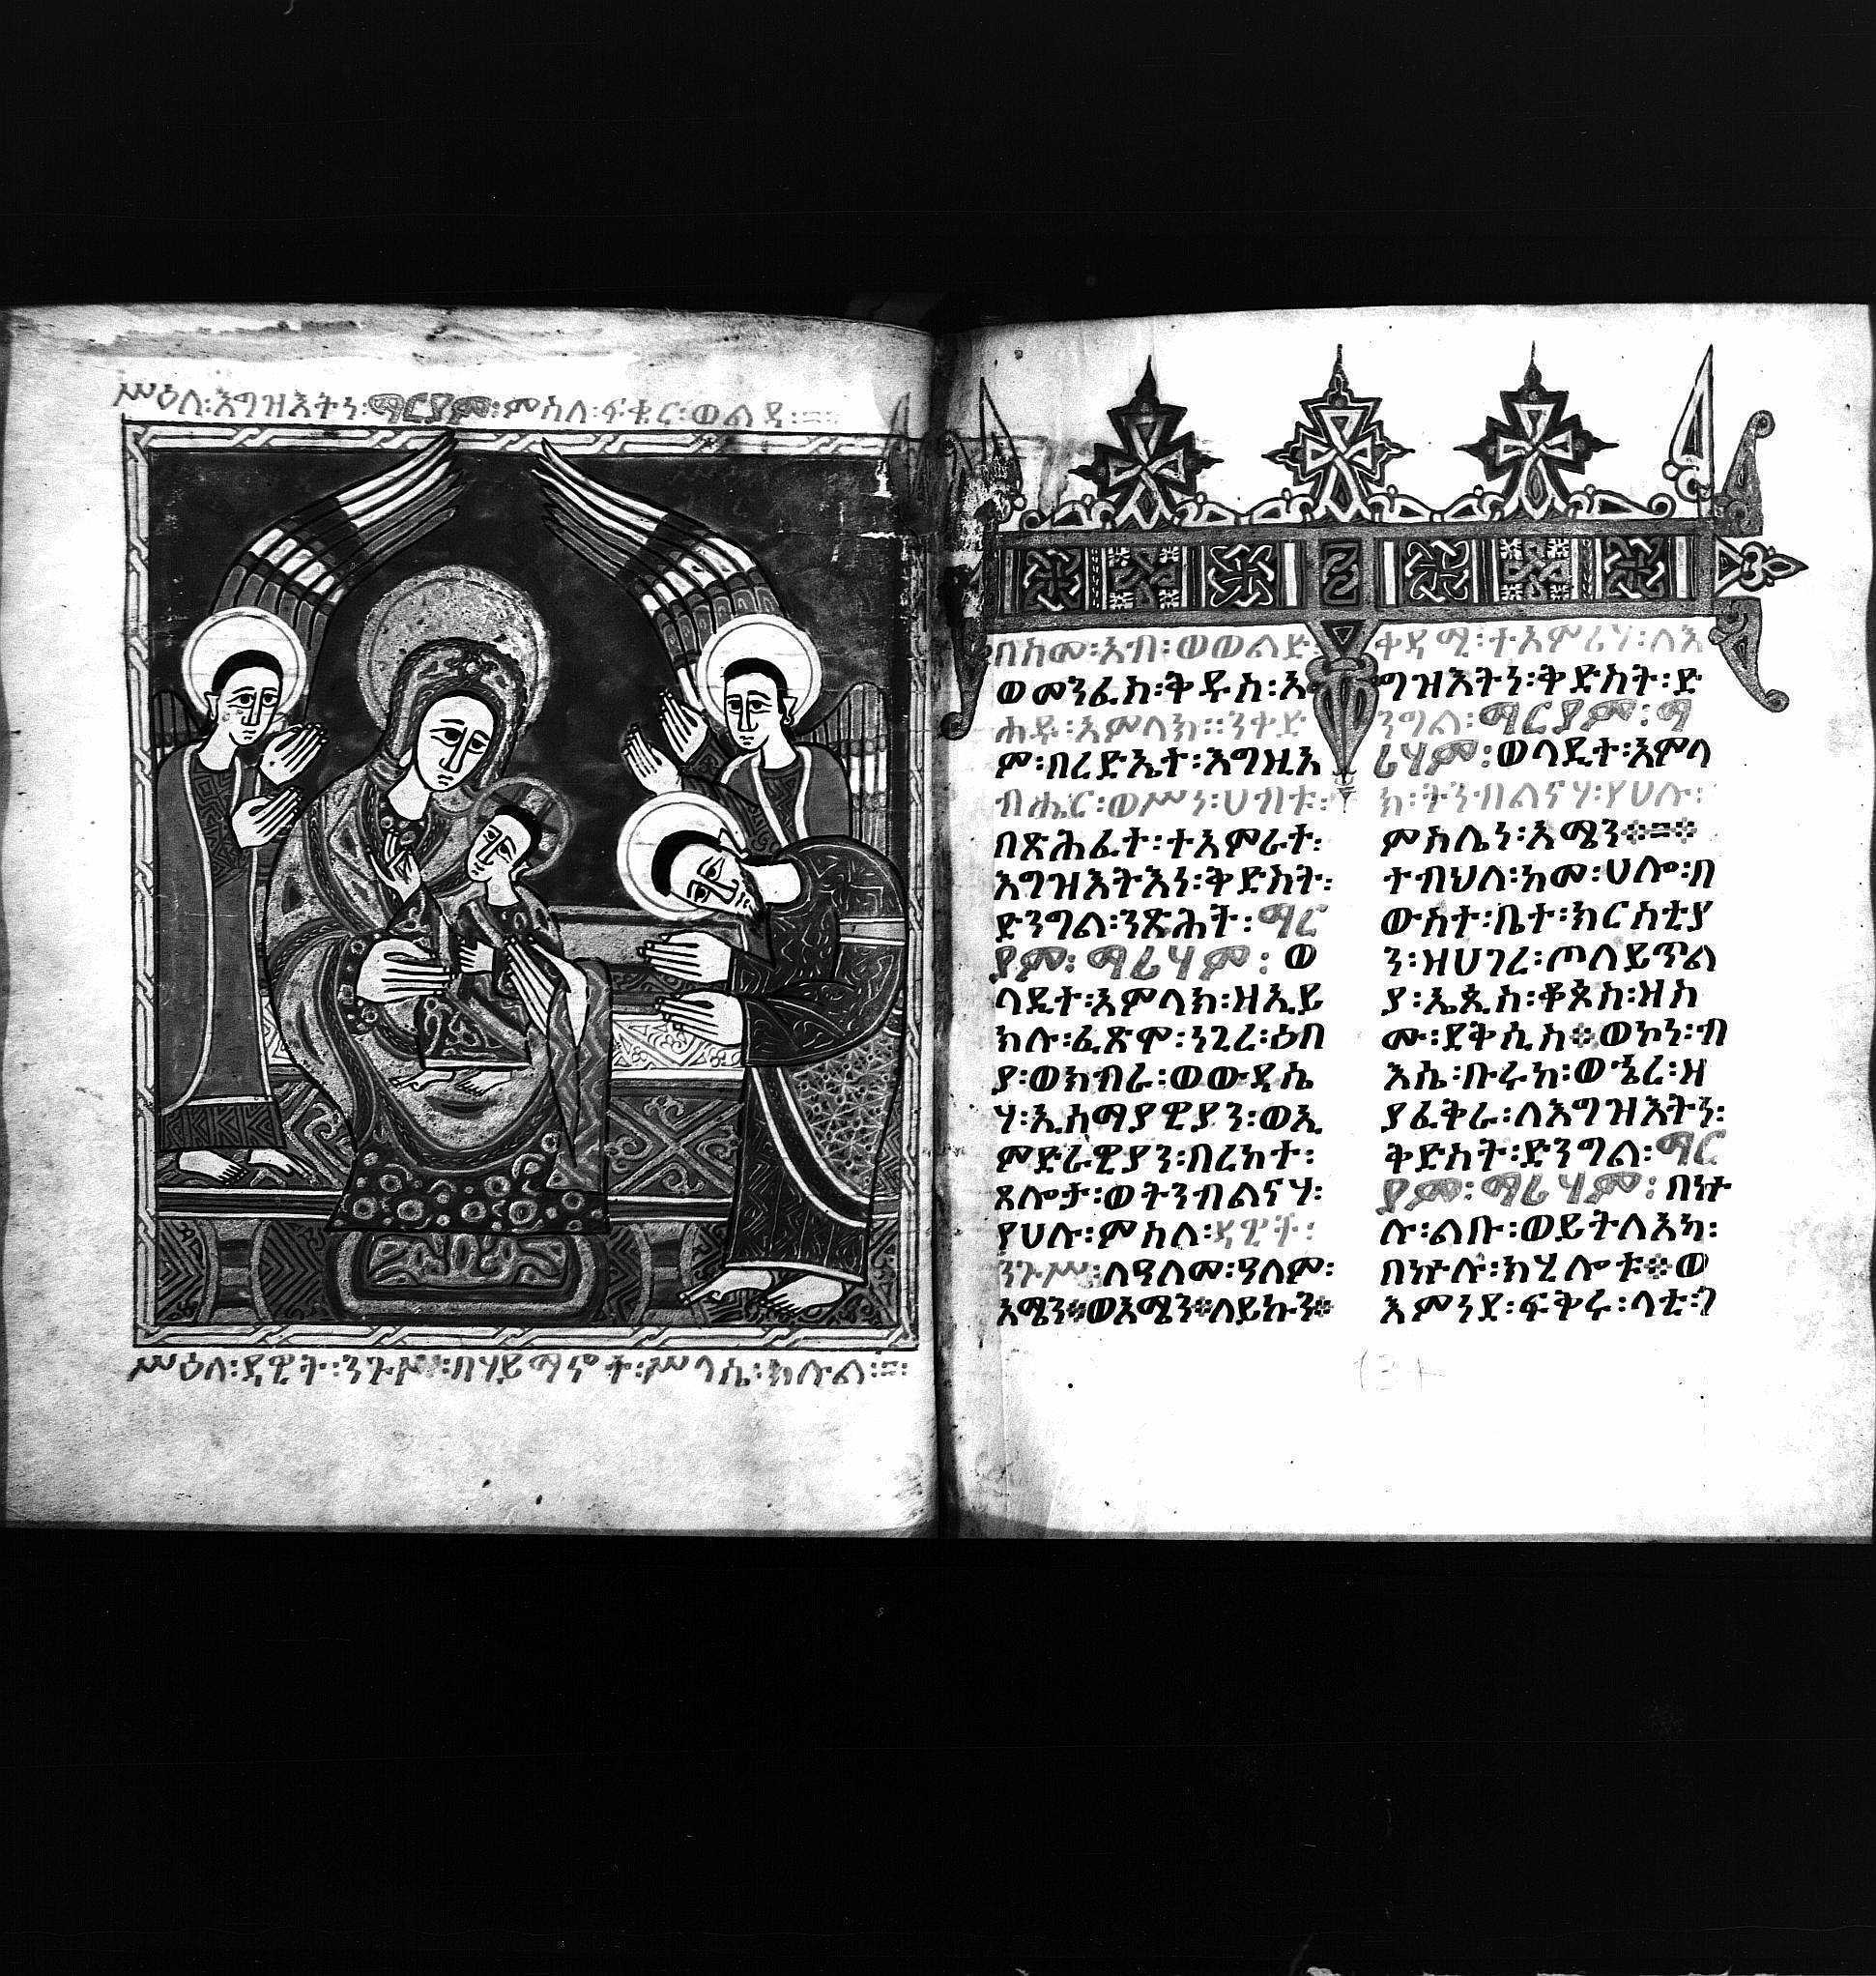 ሥዕለ፡እግዝእትነ፡ማርያም፡ምስለ፡ፍቁር፡ወልዳ፡
ሥዕለ፡ዳዊት፡ንጉሥ፡በሃይማኖት፡ሥላሴ፡ክሉል፡
በስመ፡አብ፡ወወልድ፡
ወመንፈስ፡ቅዱስ፡አ
ሐዱ፡አምላክ፡፡ንቀድ
ም፡በረድኤተ፡እግዚአ
ብሔር፡ወሥነ፡ሀብቱ፡
በጽሕፈተ፡ተአምራት፡
እግዝእትእነ፡ቅድስት፡
ድንግል፡ንጽሕት፡ማር
ያም፡ማሪሃም፡ወ
ላዲተ፡አምላክ፡ዘኢይ
ክሉ፡ፈጽሞ፡ነገረ፡ዕበ
ያ፡ወክብራ፡ወውዳሴ
ሃ፡ኢሰማያዊያን፡ወኢ
ምድራዊያን፡በረከተ፡
ጸሎታ፡ወትንብልናሃ፡
የሀሉ፡ምስለ፡ዳዊት፡
ንጉሥ፡ለዓለመ፡ዓለም፡
አሜን፨ወአሜን፨ለይኩን፨
ቀዳሚ፡ተአምሪሃ፡ለእ
ግዝእትነ፡ቅድስት፡ድ
ንግል፡ማርያም፡ማ
ሪሃም፡ወላዲተ፡አምላ
ክ፡ትንብልናሃ፡የሀሉ፡
ምስሌነ፡አሜን፨
ተብህለ፡ከመ፡ሀሎ፡በ
ውስተ፡ቤተ፡ክርስቲያ
ን፡ዝሀገረ፡ጦለይጥል
ያ፡ኤጲስ፡ቆጶስ፡ዘስ
ሙ፡ደቅሲስ፨ወኮነ፡ብ
እሴ፡ቡሩከ፡ወኄረ፡ዘ
ያፈቅራ፡ለእግዝእትን፡
ቅድስት፡ድንግል፡ማር
ያም፡ማሪሃም፡በኵ
ሉ፡ልቡ፡ወይትለእካ፡
በኵሉ፡ክሂሎቱ፨ወ
እምንደ፡ፍቅሩ፡ላቲ፡ገ